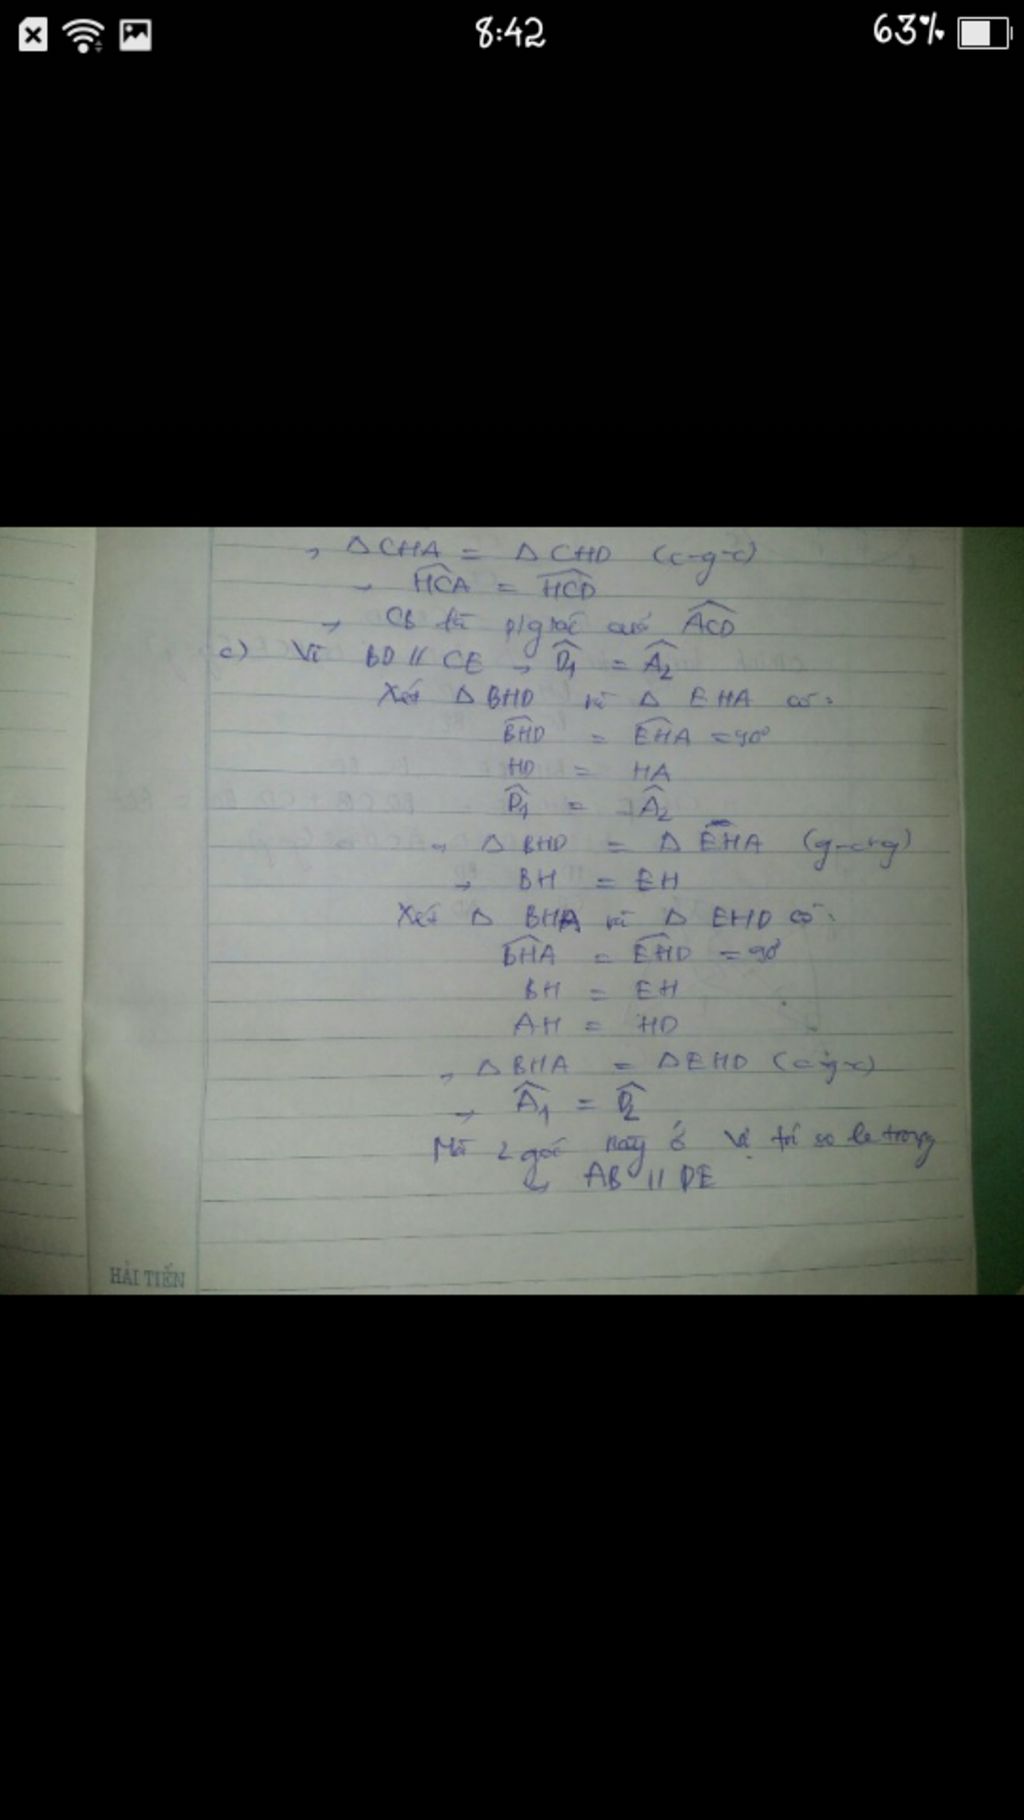 8:42
63%
→ Δ CHA = Δ CHD (c-g-c)
→ HCA = HCD
→ CB là p/giác của ACD
c) Vì BD // CE → D1 = A2
Xét Δ BHD và Δ EHA có:
BHD = EHA = 90°
HD = HA
D1 = A2
→ Δ BHD = Δ EHA (g-c-g)
→ BH = EH
Xét Δ BHA và Δ EHD có:
BHA = EHD = 90°
BH = EH
AH = HD
→ Δ BHA = Δ EHD (c-g-c)
→ A1 = D2
Mà 2 góc này ở vị trí so le trong
→ AB // DE
HẢI TIẾN